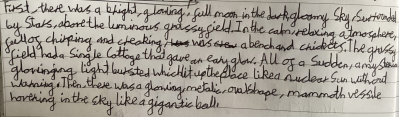 First, there was a bright, glowing, full moon in the dark gloomy Sky, Surrounded
by Stars, above the luminous grassy field. In the calm, relaxing atmosphere,
full of chirping and creaking, was a bench and crickets. The grassy
field had a Single Cottage that gave an eary glow. All of a Sudden, a
glowinging light bursted which lit up the place like a nuclear Sun without
warning. Then, there was a glowing, metalic, oval shape, mammoth vessile
hovering in the sky like a gigantic ball.